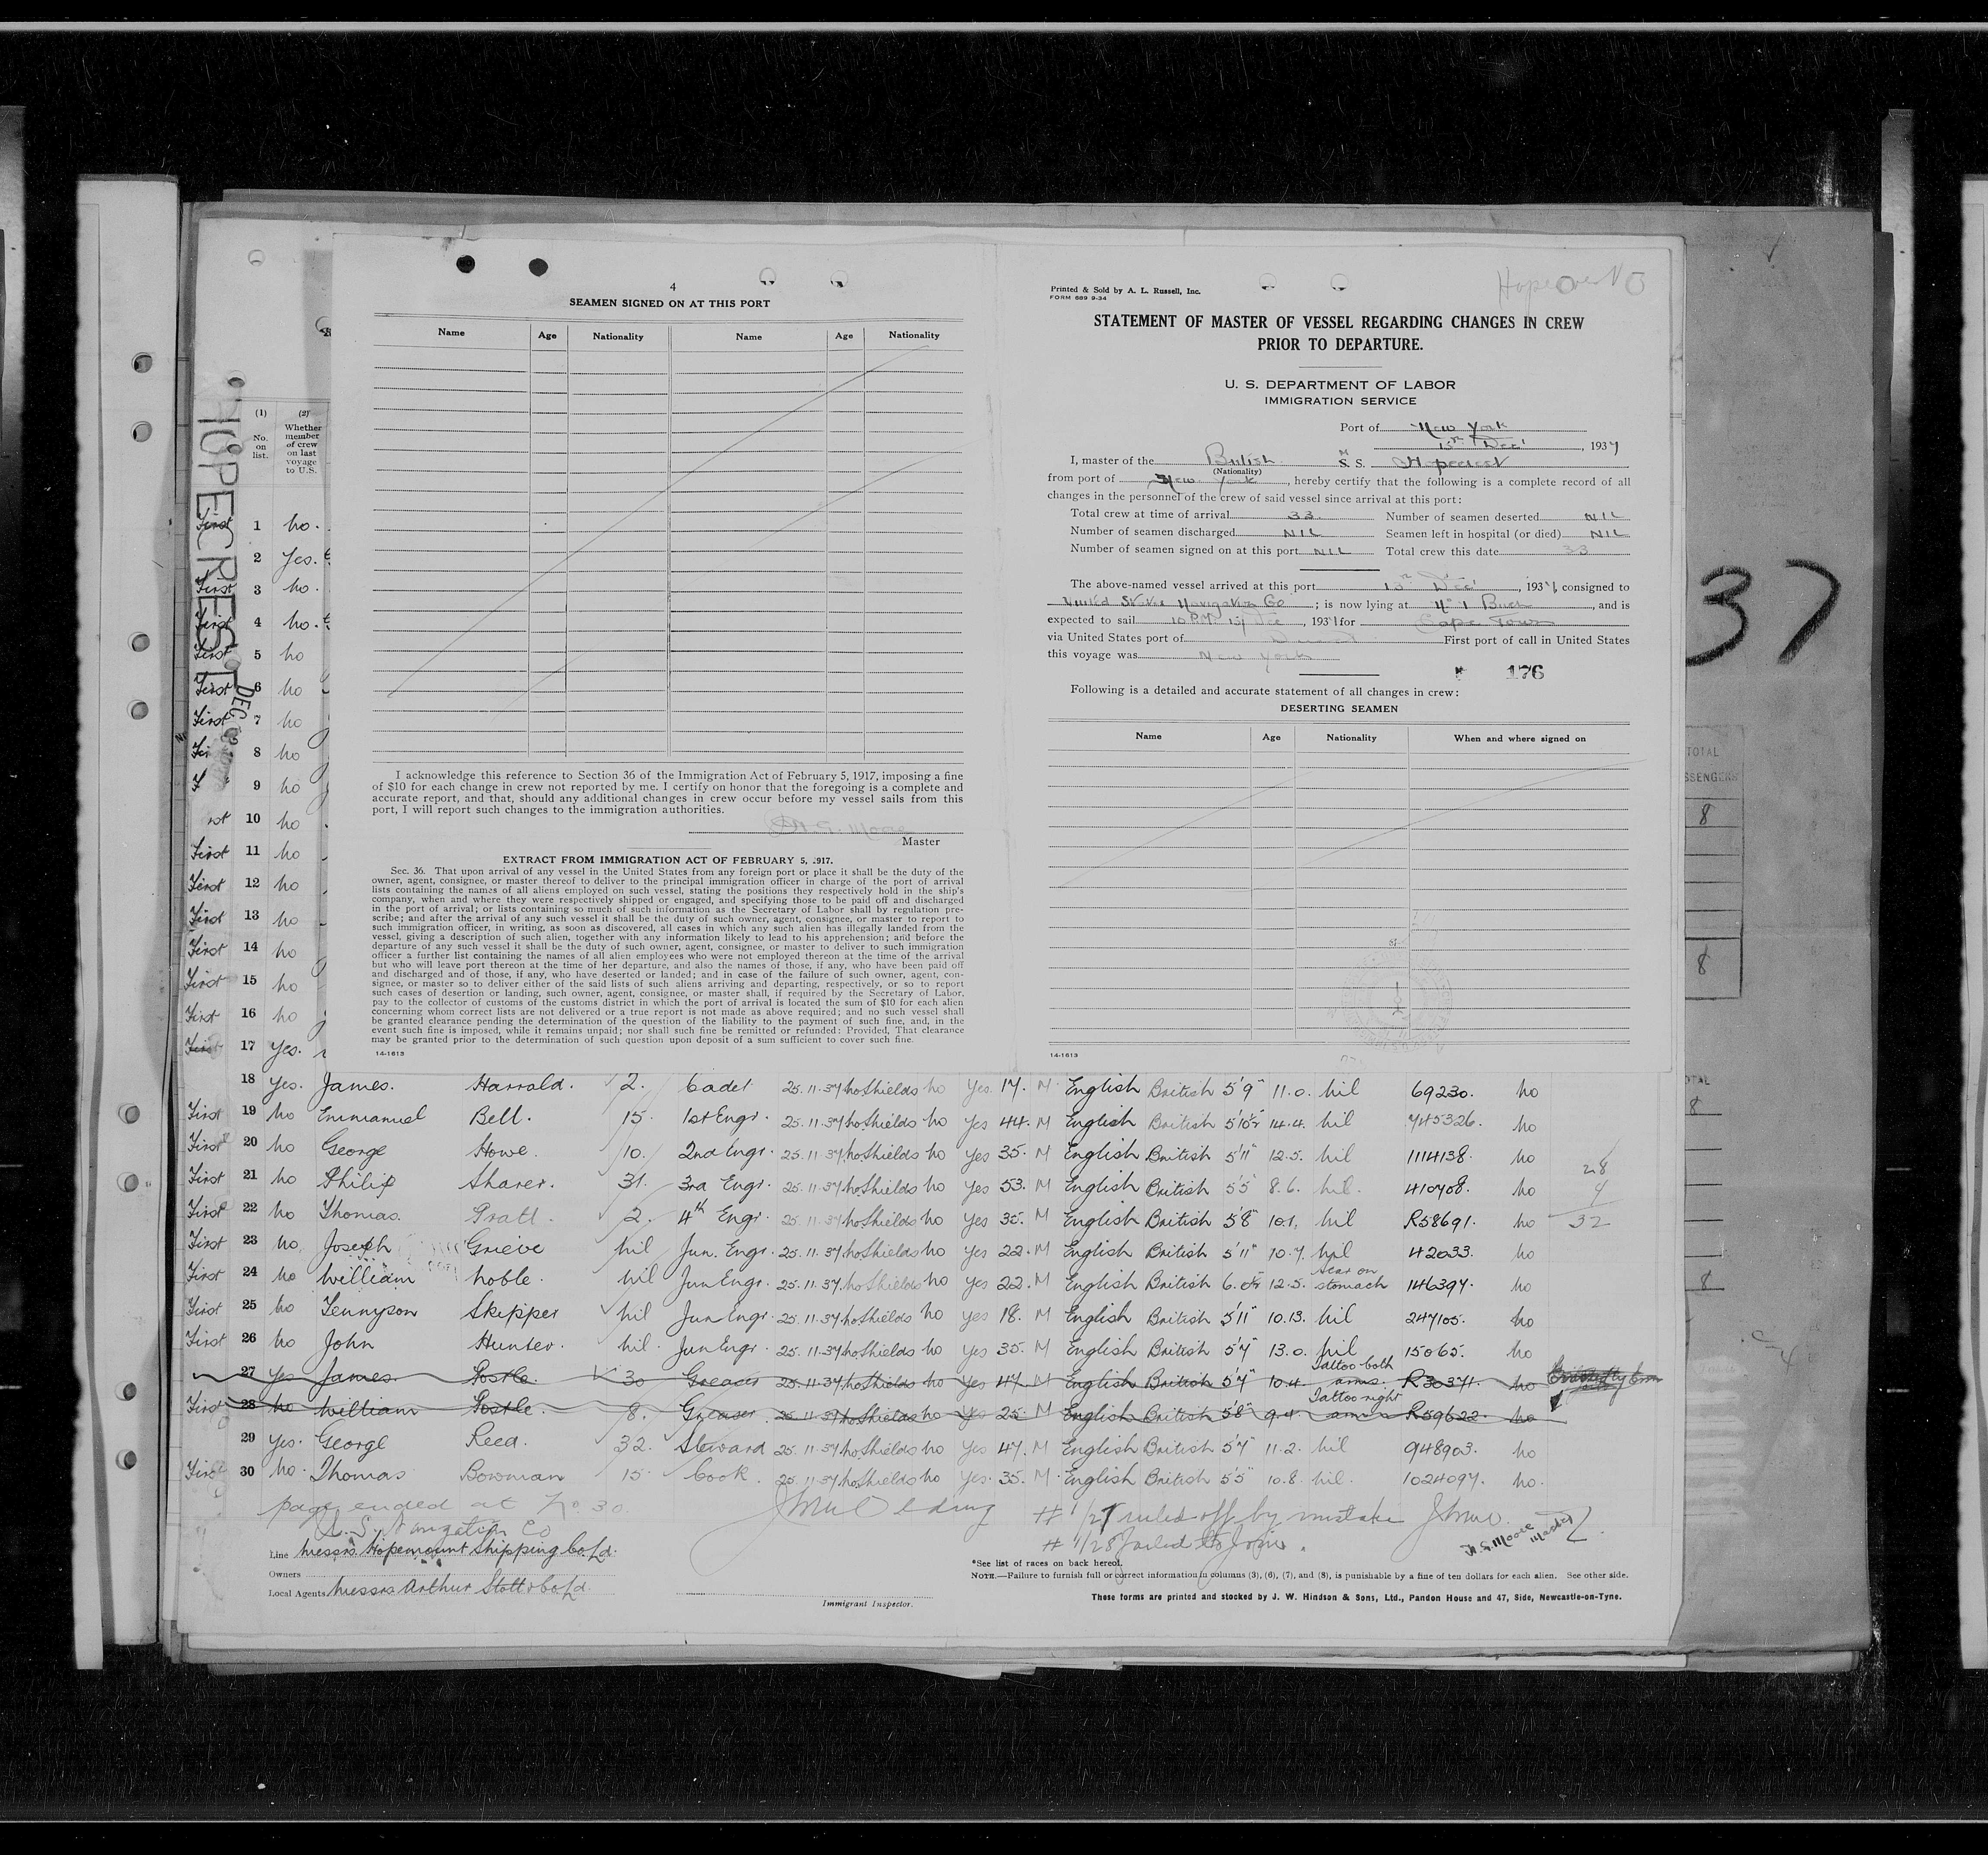 4
SEAMEN SIGNED ON AT THIS PORT
Name Age Nationality Name Age Nationality
I acknowledge this reference to Section 36 of the Immigration Act of February 5, 1917, imposing a fine
of $10 for each change in crew not reported by me. I certify on honor that the foregoing is a complete and
accurate report, and that, should any additional changes in crew occur before my vessel sails from this
port, I will report such changes to the immigration authorities.
Moore
Master
EXTRACT FROM IMMIGRATION ACT OF FEBRUARY 5, 1917.
Sec. 36. That upon arrival of any vessel in the United States from any foreign port or place it shall be the duty of the
owner, agent, consignee, or master thereof to deliver to the principal immigration officer in charge of the port of arrival
lists containing the names of all aliens employed on such vessel, stating the positions they respectively hold in the ship's
company, when and where they were respectively shipped or engaged, and specifying those to be paid off and discharged
in the port of arrival; or lists containing so much of such information as the Secretary of Labor shall by regulation pre-
scribe; and after the arrival of any such vessel it shall be the duty of such owner, agent, consignee, or master to report to
such immigration officer, in writing, as soon as discovered, all cases in which any such alien has illegally landed from the
vessel, giving a description of such alien, together with any information likely to lead to his apprehension; and before the
departure of any such vessel it shall be the duty of such owner, agent, consignee, or master to deliver to such immigration
officer a further list containing the names of all alien employees who were not employed thereon at the time of the arrival
but who will leave port thereon at the time of her departure, and also the names of those, if any, who have been paid off
and discharged and of those, if any, who have deserted or landed; and in case of the failure of such owner, agent, con-
signee, or master so to deliver either of the said lists of such aliens arriving and departing, respectively, or so to report
such cases of desertion or landing, such owner, agent, consignee, or master shall, if required by the Secretary of Labor,
pay to the collector of customs of the customs district in which the port of arrival is located the sum of $10 for each alien
concerning whom correct lists are not delivered or a true report is not made as above required; and no such vessel shall
be granted clearance pending the determination of the question of the liability to the payment of such fine, and, in the
event such fine is imposed, while it remains unpaid; nor shall such fine be remitted or refunded: Provided, That clearance
may be granted prior to the determination of such question upon deposit of a sum sufficient to cover such fine.
14-1613
Printed & Sold by A. L. Russell, Inc.
FORM 689 9-34
STATEMENT OF MASTER OF VESSEL REGARDING CHANGES IN CREW
PRIOR TO DEPARTURE.
U. S. DEPARTMENT OF LABOR
IMMIGRATION SERVICE
Port of New York
13th Dec, 1937
I, master of the British M S. S. Hopecrest
(Nationality)
from port of New York, hereby certify that the following is a complete record of all
changes in the personnel of the crew of said vessel since arrival at this port:
Total crew at time of arrival 33. Number of seamen deserted NIL
Number of seamen discharged NIL Seamen left in hospital (or died) NIL
Number of seamen signed on at this port NIL Total crew this date 33
The above-named vessel arrived at this port 13th Dec, 1937, consigned to
United States Navigation Co; is now lying at and is
expected to sail 10 PM Dec, 1937 for Cape Town
via United States port of Direct First port of call in United States
this voyage was New York
176
Following is a detailed and accurate statement of all changes in crew:
DESERTING SEAMEN
Name Age Nationality When and where signed on
14-1613
HOPECREST
DEC
(1) (2)
No. on list. Whether member of crew on last voyage to U.S.
First 1 no.
2 Yes.
First 3 no.
First 4 no.
First 5 no
First 6 no
First 7 no
8 no
9 no
10 no
First 11 no
First 12 no
First 13 no
First 14 no
First 15 no
First 16 no
First 17 Yes.
18 Yes. James. Harrald. 2. Cadet 25.11.37 No Shields no Yes. 17. M English British 5'9" 11.0. nil 69230. no
First 19 no Emmanuel Bell. 15. 1st Engr. 25.11.37 No Shields no Yes 44. M English British 5'10½" 14.4. nil 745326. no
First 20 no George Howe. 10. 2nd Engr. 25.11.37 No Shields no Yes 35. M English British 5'11" 12.5. nil 1114138. no
First 21 no Philip Sharer. 31. 3rd Engr. 25.11.37 No Shields no Yes 53. M English British 5'5" 8.6. nil. 410708. no
First 22 no Thomas. Pratt. 2. 4th Engr. 25.11.37 No Shields no Yes 35. M English British 5'8" 10.1. nil R58691. no
First 23 no Joseph Grieve nil Jun. Engr. 25.11.37 No Shields no Yes 22. M English British 5'11" 10.7. nil 42033. no
First 24 no William Noble. nil Jun Engr. 25.11.37 No Shields no Yes 22. M English British 12.5. Scar on stomach 146397. no
First 25 no Tennyson Skipper nil Jun Engr. 25.11.37 No Shields no Yes 18. M English British 5'11" 10.13. nil 247105. no
First 26 no John Hunter. nil. Jun Engr. 25.11.37 No Shields no Yes 35. M English British 5'7" 13.0. nil 15065. no
27 Yes James. Postle. 30 Greaser 25.11.37 No Shields no Yes 47 M English British 5'7" 10.4. Tattoo both arms. R30371. no
First 28 no William Postle. 8. Greaser 25.11.37 No Shields no Yes 25. M English British 5'8" 9.4. Tattoo right arm R59622. no
29 Yes. George Reed. 32. Steward 25.11.37 No Shields no Yes 47. M English British 5'7" 11.2. nil 948903. no
First 30 no. Thomas Bowman 15. Cook. 25.11.37 No Shields no Yes. 35. M English British 5'5" 10.8. nil. 1024097. no.
28
4
32
page ended at No 30.
# 1/27 ruled off by mistake
# 1/28 failed to join.
H.G. Moore Master
U. S. Navigation Co
Line Messrs. Hopemount Shipping Co Ld.
Owners
Local Agents Messrs Arthur Stott & Co Ld.
Immigrant Inspector.
*See list of races on back hereof.
NOTE.—Failure to furnish full or correct information in columns (3), (6), (7), and (8), is punishable by a fine of ten dollars for each alien. See other side.
These forms are printed and stocked by J. W. Hindson & Sons, Ltd., Pandon House and 47, Side, Newcastle-on-Tyne.
37
TOTAL
8
8
8
8